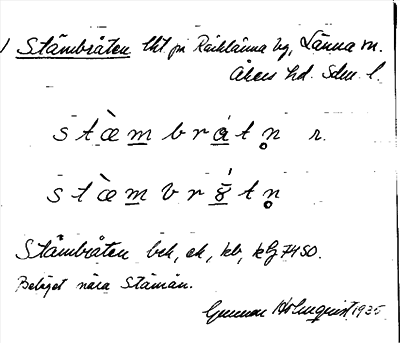 Stämbråten lht på Räcklänna bg, Länna sn.
Åkers hd. Sdm. l.
s t æ̀ m b r á t n̥ r.
s t æ̀ m v r ǵ t n̥
Stämbråten bek, ek, kb, kbj 7450.
Beläget nära Stämån.
Gunnar Holmquist 1935